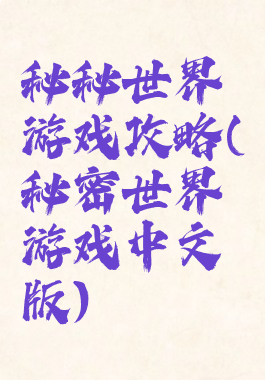 秘秘世界
游戏攻略(
秘密世界
游戏中文
版)